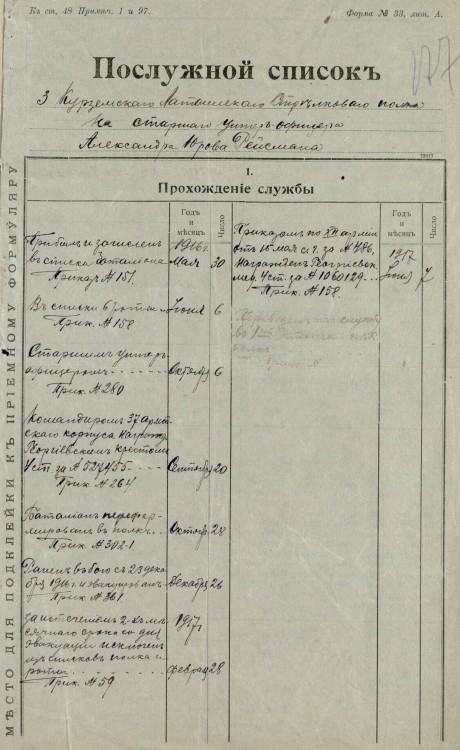 Къ ст. 48 Примѣч. 1 и 97.
Форма № 33, лит. А.
177
Послужной списокъ
3 Курземскаго Латышскаго Стрѣлковаго полка
На старшаго унтеръ-офицера
Александра Юрова Рейсмана
МѢСТО ДЛЯ ПОДКЛЕЙКИ КЪ ПРІЕМНОМУ ФОРМУЛЯРУ
I.
Прохожденіе службы
Годъ и мѣсяцъ
Число
Прибылъ и зачисленъ
въ списки баталіона
Приказ № 151.
1916 г.
Мая 30
Въ списки роты
Прик. № 158
Іюня 6
Старшимъ унтеръ-
офицеромъ
Прик № 280
Октября 6
Командиромъ 37 армей-
скаго корпуса награжд.
Георгіевскимъ крестомъ
4 ст. за № 527455
Прик № 264
Сентября 20
Баталіонъ перефор-
мированъ въ полкъ
Прик. № 302-1
Октябр. 28
Раненъ въ бою съ 23 дека-
бря 1916 г. и эвакуированъ
Прик № 361
Декабря 26
За истеченіемъ 2-хъ мѣ-
сячнаго срока со дня
эвакуаціи исключенъ
изъ списковъ полка и
роты
Прик № 59
1917 г.
Феврал 28
Годъ и мѣсяцъ
Число
Приказомъ по XII арміи
отъ 15 мая с. г. за № 486.
Награжденъ Георгіевск.
мед. 4 ст. за № 1060129
Прик. № 158.
1917
Іюня 7